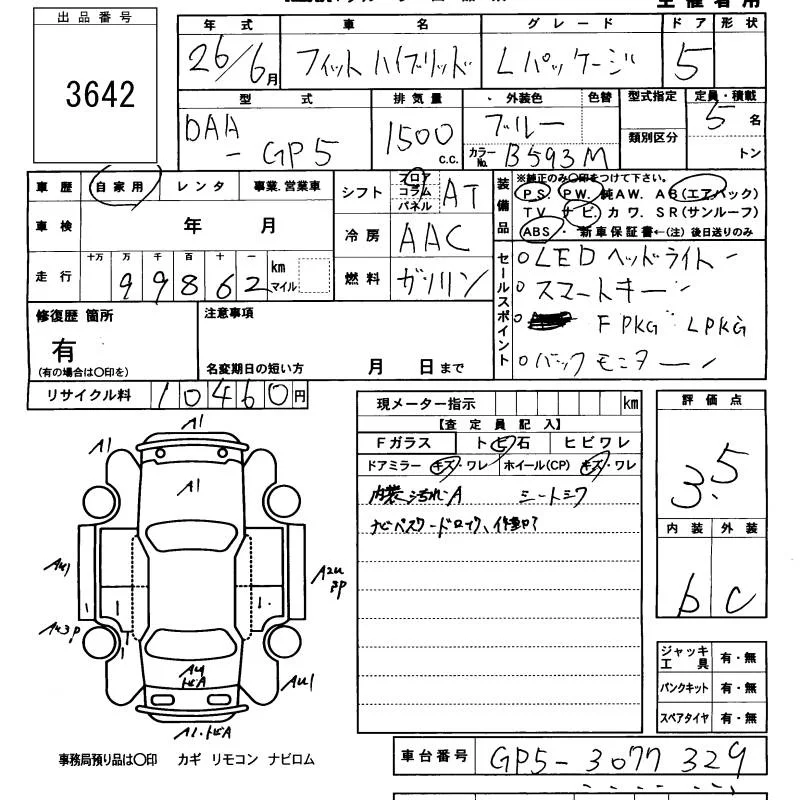 出品番号
3642
年式 車名 グレード ドア 形状
26/6月 フィット ハイブリッド Lパッケージ 5
型式 排気量 外装色 色替 型式指定 定員・積載
DAA-GP5 1500 c.c. ブルー 類別区分 5名
カラーNo. B593M トン
車歴 自家用 レンタ 事業、営業車
車検 年 月
走行 十万 万 千 百 十 一 km マイル
99862
シフト フロア コラム パネル AT
冷房 AAC
燃料 ガソリン
装備品
※純正のみ〇印をつけて下さい。
PS. PW. 純AW. AB(エアバック)
TV. ナビ. カワ. SR(サンルーフ)
ABS・新車保証書←(注)後日送りのみ
セールスポイント
LEDヘッドライト
スマートキー
FPKG LPKG
バックモニター
修復歴 箇所
有
(有の場合は〇印を)
注意事項
名変期日の短い方 月 日まで
リサイクル料 10460円
現メーター指示 km
【査定員記入】
Fガラス トビ石 ヒビワレ
ドアミラー キズ・ワレ ホイール(CP) キズ・ワレ
内装汚れA シートミワ
ナビパスワードロック、作動
評価点
3.5
内装 外装
b C
A1
A1
A1
AU1
A2U
AU3P
AU
トビA
AU1
A1.トビA
ジャッキ工具 有・無
パンクキット 有・無
スペアタイヤ 有・無
事務局預り品は〇印 カギ リモコン ナビロム
車台番号 GP5-3077329